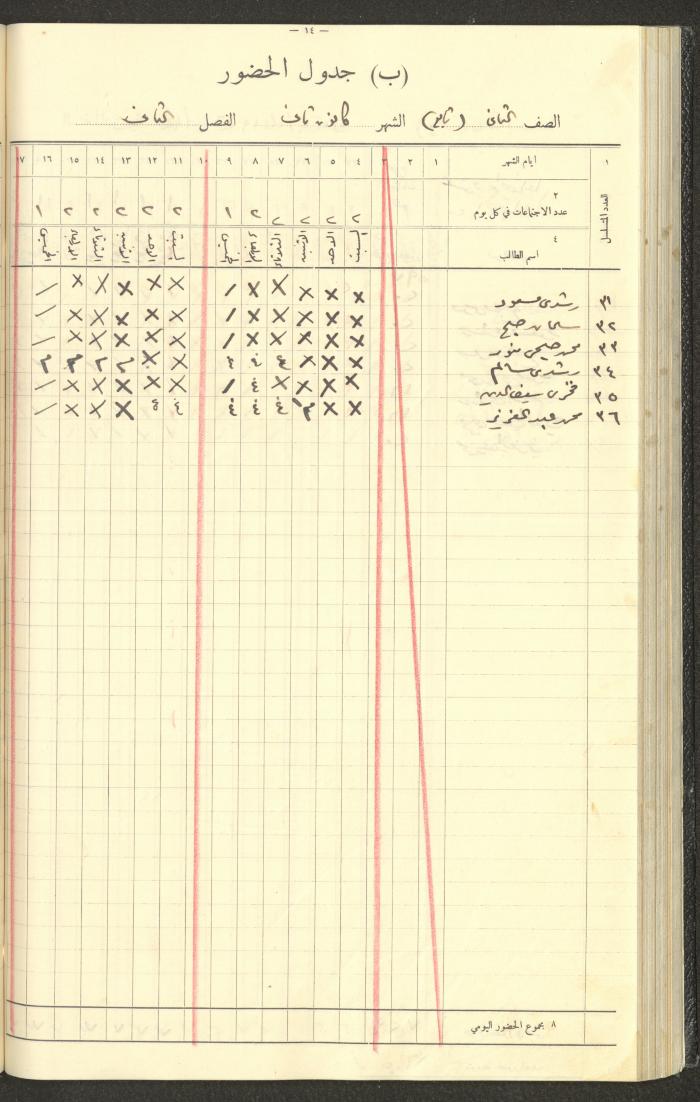 — ١٤ —
(ب) جدول الحضور
الصف الثاني (تابع) الشهر كانون ثاني الفصل الثاني
١ ايام الشهر ١ ٢ ٣ ٤ ٥ ٦ ٧ ٨ ٩ ١٠ ١١ ١٢ ١٣ ١٤ ١٥ ١٦ ١٧
العدد المتسلسل
٢
عدد الاجتماعات في كل يوم ٢ ٢ ٢ ٢ ٢ ١ ٢ ٢ ٢ ٢ ٢ ١
٤
اسم الطالب السبت الاحد الاثنين الثلاثاء الاربعاء الخميس السبت الاحد الاثنين الثلاثاء الاربعاء الخميس
٣١ رشدي مسعود X X X X X / X X X X X /
٣٢ X X X X X / X X X X X /
٣٣ محمد صبحي منور X X X X X / X X X X X /
٣٤ رشدي سالم X X X
٣٥ فخري سيف الدين X X X X / X X X X X /
٣٦ محمد عبد العزيز X X X X X /
٨ مجموع الحضور اليومي